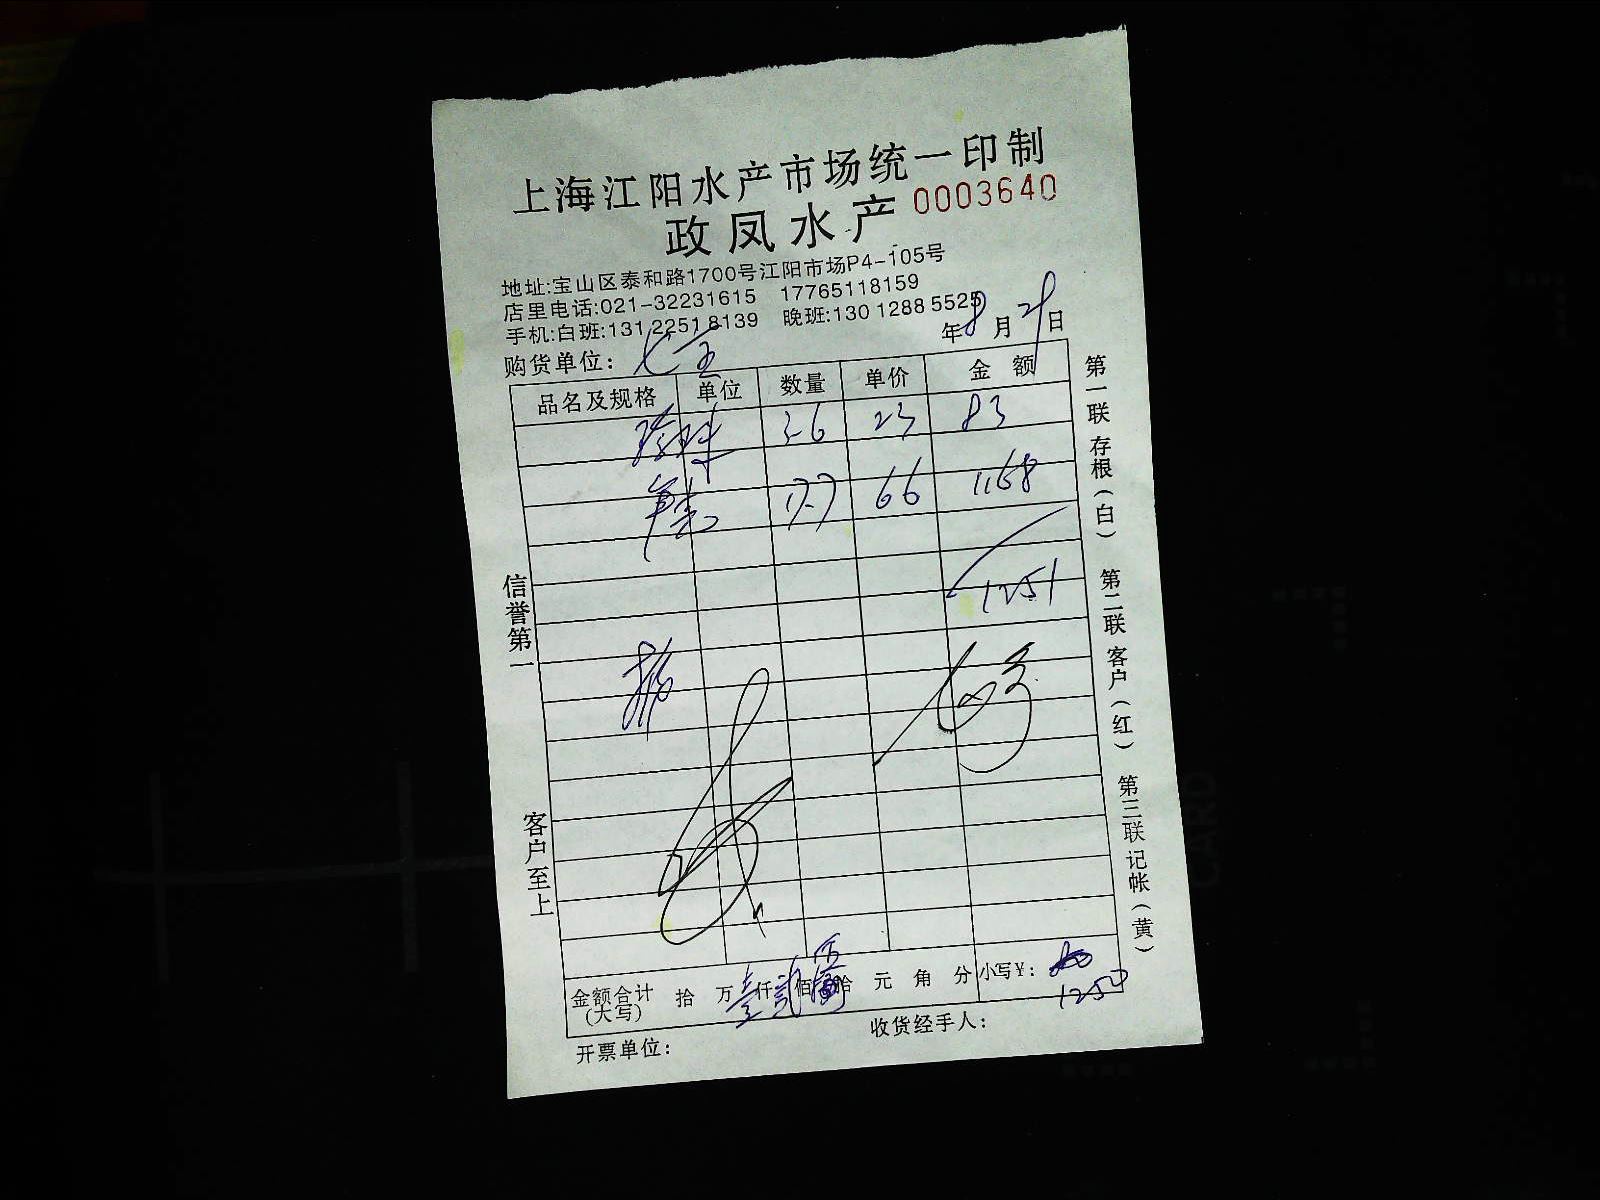 上海江阳水产市场统一印制
政凤水产 0003640
地址:宝山区泰和路1700号江阳市场P4-105号
店里电话:021-32231615 17765118159
手机:白班:131 2251 8139 晚班:130 1288 5525
年8月29日
购货单位:
品名及规格 单位 数量 单价 金额
3.6 23 83
17.7 66 1168
1251
金额合计(大写) 拾 万 壹仟 贰佰 伍拾 元 角 分 小写¥: 1250
开票单位: 收货经手人:
信誉第一 客户至上
第一联存根(白) 第二联客户(红) 第三联记帐(黄)